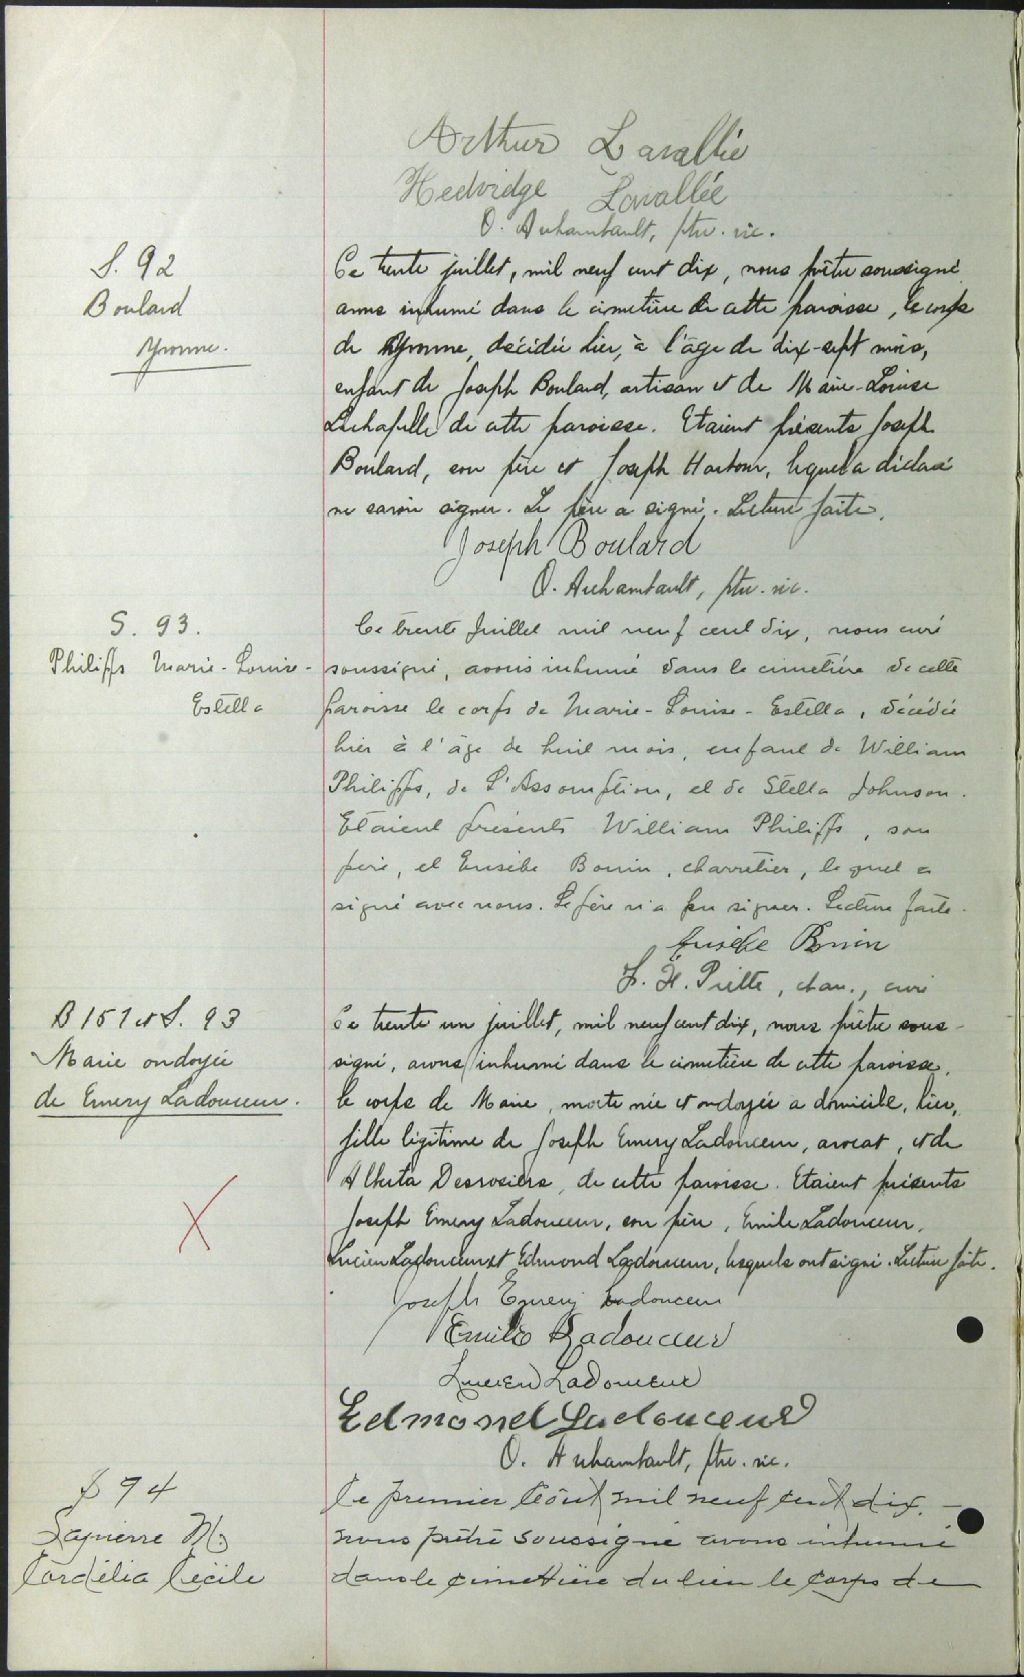 Arthur Lavallée
Hedvidge Lavallée
O. Archambault, ptre. vic.
S. 92
Boulard
Yvonne.
Ce trente juillet, mil neuf cent dix, nous prêtre soussigné
avons inhumé dans le cimetière de cette paroisse, le corps
de Yvonne, décédée hier, à l'âge de dix-sept mois,
enfant de Joseph Boulard, artisan et de Marie-Louise
Lachapelle de cette paroisse. Etaient présents Joseph
Boulard, son père et Joseph Harbour, lequel a déclaré
ne savoir signer. Le père a signé. Lecture faite.
Joseph Boulard
O. Archambault, ptre. vic.
S. 93.
Philipps Marie-Louise-
Estella
Ce trente Juillet mil neuf cent dix, nous curé
soussigné, avons inhumé dans le cimetière de cette
paroisse le corps de Marie-Louise-Estella, décédée
hier à l'âge de huit mois, enfant de William
Philipps, de L'Assomption, et de Stella Johnson.
Etaient présents William Philipps, son
père, et Eusèbe Bonin, charretier, lequel a
signé avec nous. Le père n'a pu signer. Lecture faite.
Eusèbe Bonin
F. X. Piette, chan., curé
B 151 et S. 93
Marie ondoyée
de Emery Ladouceur.
Ce trente un juillet, mil neuf cent dix, nous prêtre sous-
signé, avons inhumé dans le cimetière de cette paroisse,
le corps de Marie, morte née et ondoyée a domicile, hier,
fille légitime de Joseph Emery Ladouceur, avocat, et de
Alberta Desrosiers, de cette paroisse. Etaient présents
Joseph Emery Ladouceur, son père, Emile Ladouceur,
Lucien Ladouceur et Edmond Ladouceur, lesquels ont signé. Lecture faite.
Joseph Emery Ladouceur
Emile Ladouceur
Lucien Ladouceur
Edmond Ladouceur
O. Archambault, ptre. vic.
S 94
Lapierre M.
Cordélia Cécile
Ce premier Août mil neuf cent dix.—
nous prêtre soussigné avons inhumé
dans le cimetière du lieu le corps de